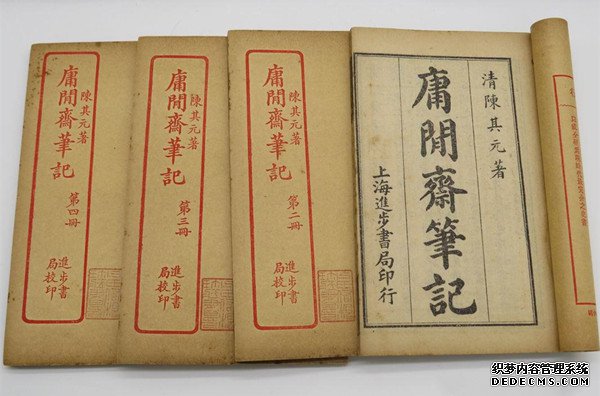 清陳其元著
庸閒齋筆記
上海進步書局印行
陳其元著
庸閒齋筆記
第二冊
進步書
局校印
陳其元著
庸閒齋筆記
第三冊
進步書
局校印
陳其元著
庸閒齋筆記
第四冊
進步書
局校印
织梦内容管理系统
DEDECMS.COM